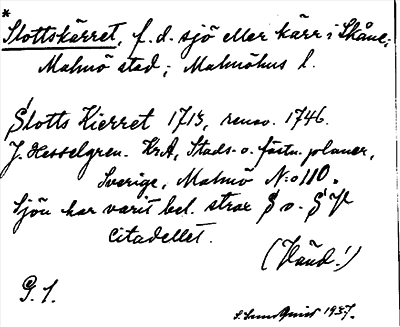 *
Slottskärret, f. d. sjö eller kärr i Skåne,
Malmö stad; Malmöhus l.
Slotts Kierret 1713, renov. 1746.
J. Hesselgren. KrA, Stads- o. fästn. planer,
Sverige, Malmö N:o 110.
Sjön har varit bel. strax S o. S V
Citadellet.
(Vänd!)
G. S.
S. Sundqvist 1937.